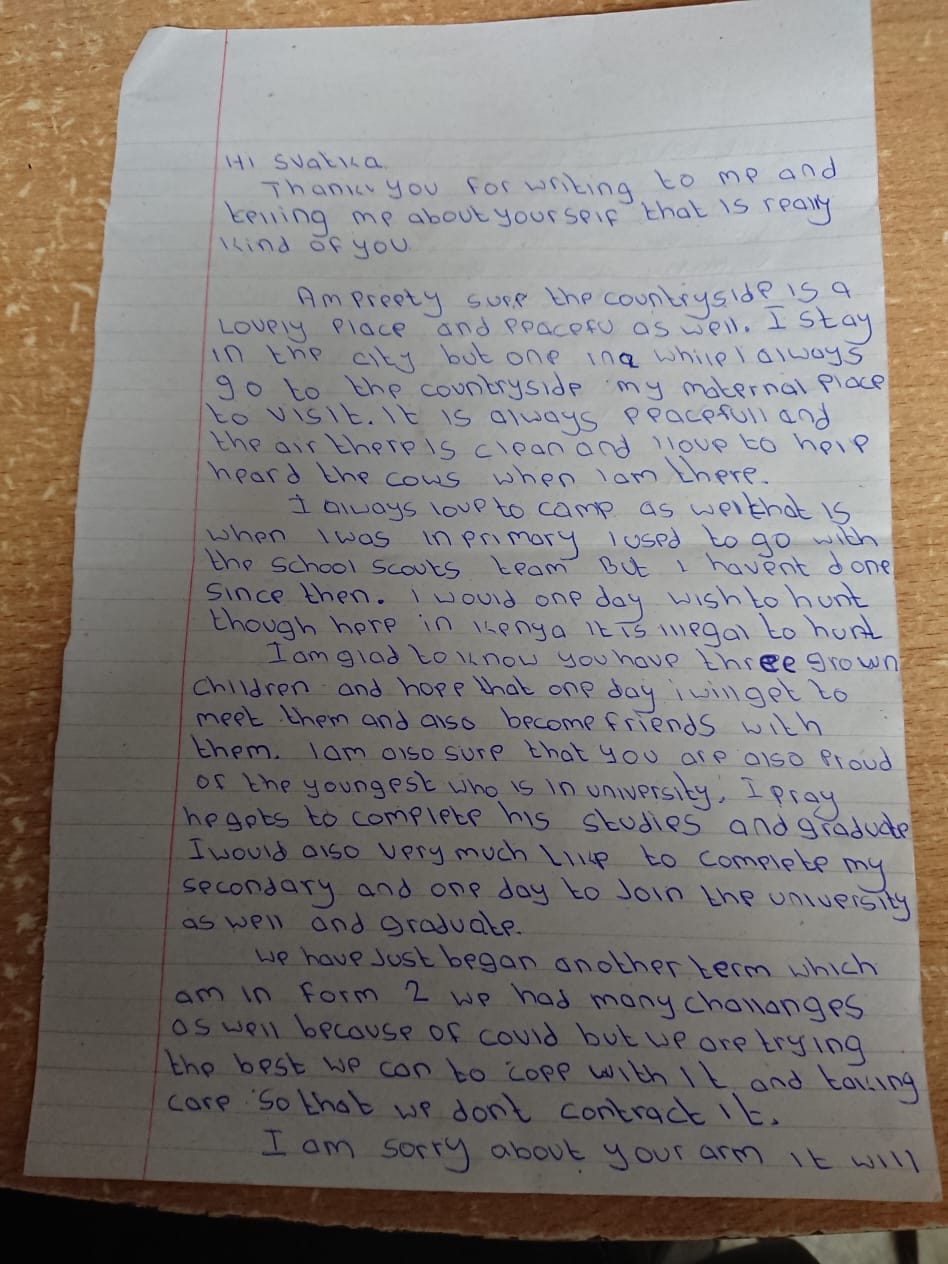 Hi Svatka
Thank you for writing to me and
telling me about yourself that is really
kind of you
Am preety sure the countryside is a
Lovely place and peacefu as well. I stay
in the city but one ina while I always
go to the countryside my maternal place
to visit. It is always peacefull and
the air there is clean and I love to help
heard the cows when I am there.
I always love to camp as well that is
when I was in primary I used to go with
the school scouts team But I havent done
since then. I would one day wish to hunt
though here in Kenya it is illegal to hunt
I am glad to know you have three grown
children and hope that one day i will get to
meet them and also become friends with
them. I am also sure that you are also proud
of the youngest who is in university, I pray
he gets to complete his studies and graduate
I would also very much like to complete my
secondary and one day to Join the university
as well and graduate.
We have Just began another term which
am in form 2 we had many challanges
as well because of covid but we are trying
the best we can to cope with it and taking
care so that we don't contract it.
I am sorry about your arm it will